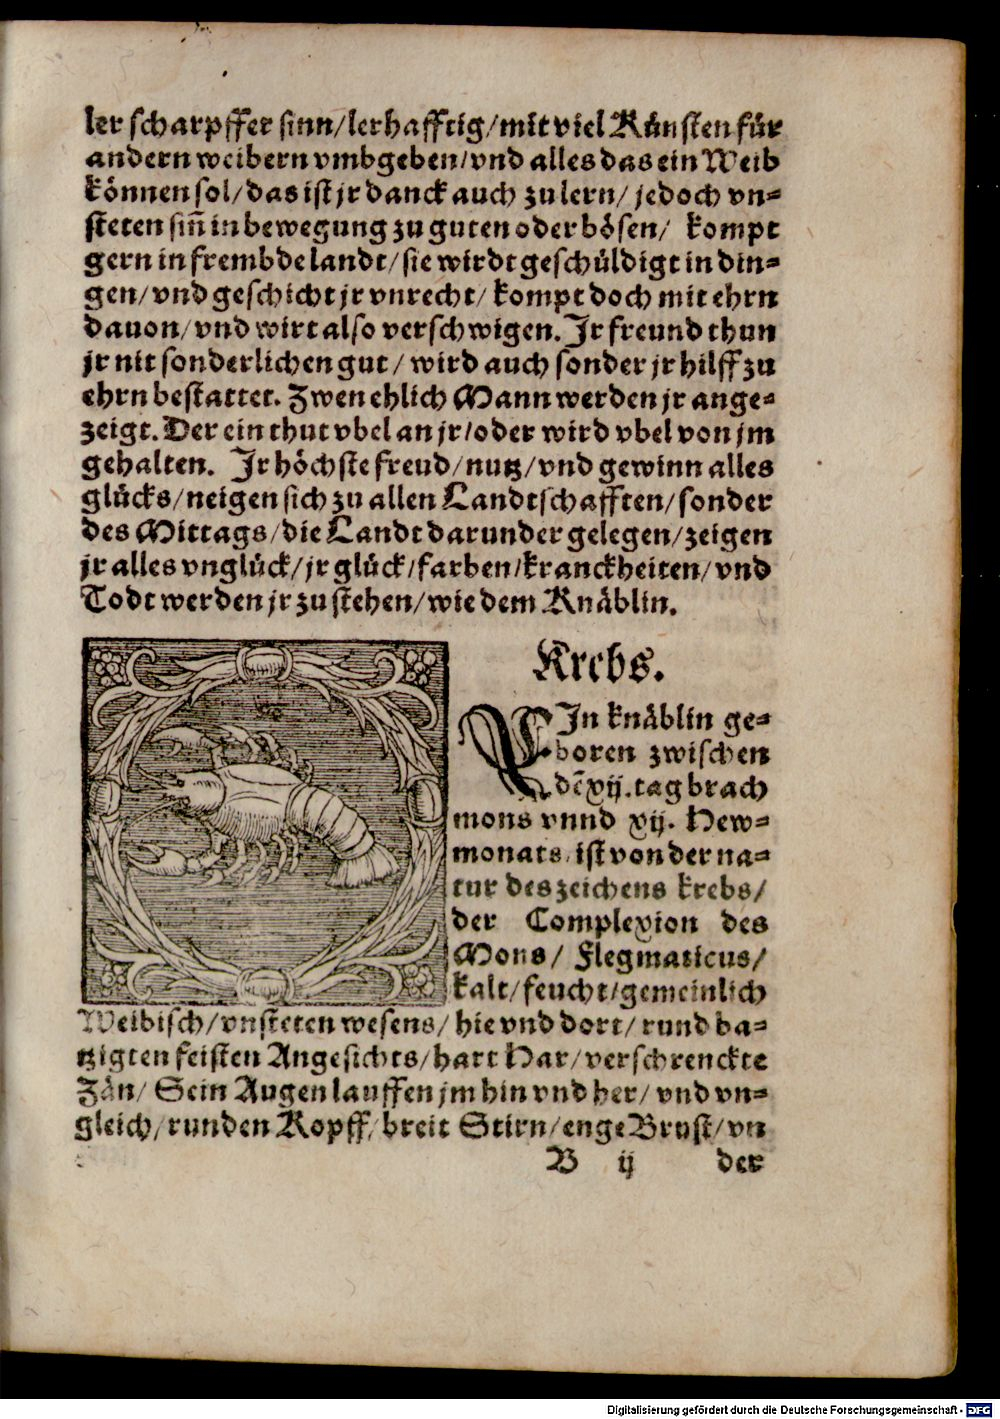 ler scharpffer sinn/lerhafftig/mit viel Künsten für
andern weibern vmbgeben/vnd alles das ein Weib
können sol/das ist jr danck auch zu lern/ jedoch vn-
steten siñ in bewegung zu guten oder bösen/ kompt
gern in frembde landt/sie wirdt geschüldigt in din-
gen/vnd geschicht jr vnrecht/ kompt doch mit ehrn
dauon/vnd wirt also verschwigen. Jr freund thun
jr nit sonderlichen gut/ wird auch sonder jr hilff zu
ehrn bestattet. Zwen ehlich Mann werden jr ange-
zeigt. Der ein thut vbel an jr/oder wird vbel von jm
gehalten. Jr höchste freud/nutz/vnd gewinn alles
glücks/neigen sich zu allen Landtschafften/sonder
des Mittags/die Landt darunder gelegen/zeigen
jr alles vnglück/jr glück/farben/kranckheiten/vnd
Todt werden jr zu stehen/wie dem Knäblin.
Krebs.
EJn knäblin ge-
boren zwischen
dẽ xij. tag brach
mons vnnd xij. Hew-
monats/ist von der na-
tur des zeichens krebs/
der Complexion des
Mons/ Flegmaticus/
kalt/feucht/gemeinlich
Weibisch/vnsteten wesens/hie vnd dort/rund ba-
tzigten feisten Angesichts/hart Har/verschrenckte
Zän/ Sein Augen lauffen jm hin vnd her/ vnd vn-
gleich/runden Kopff/breit Stirn/enge Brust/vn
B ij der
Digitalisierung gefördert durch die Deutsche Forschungsgemeinschaft - DFG